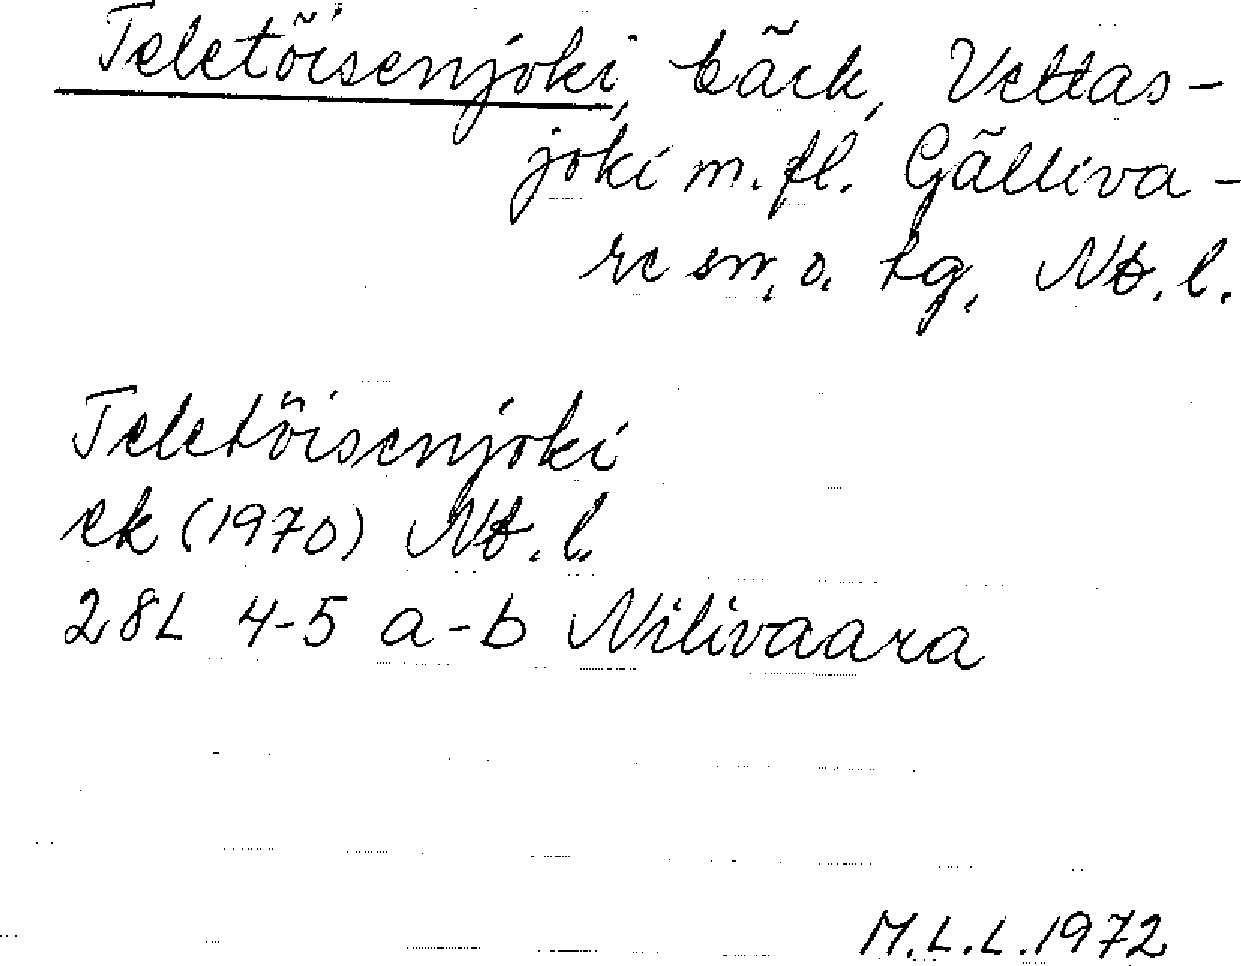 Teletöisenjoki, bäck, Vettas-
joki m. fl. Gälliva-
re sn, o. tg, Nb. l.
Teletöisenjoki
ek (1970) Nb. l.
28L 4-5 a-b Nilivaara
M.L.L. 1972